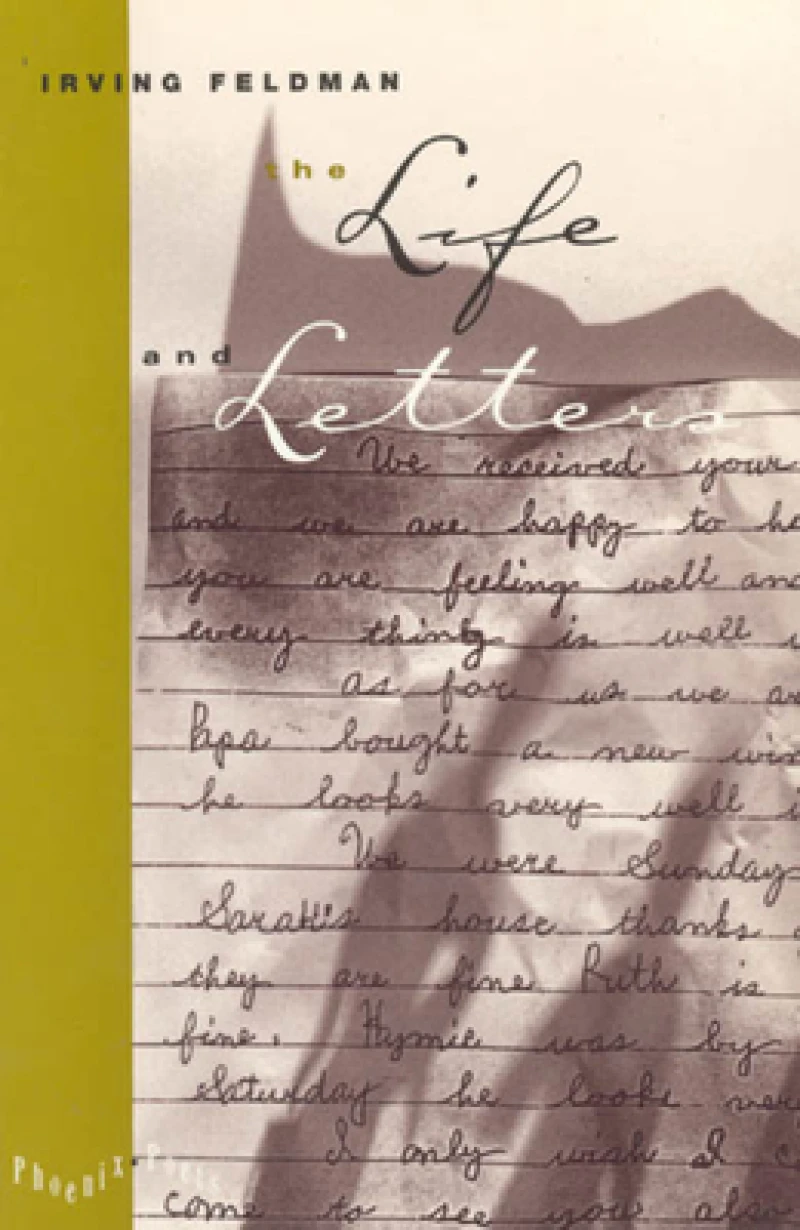 IRVING FELDMAN
the
Life
and
Letters
We received your
and we are happy to
you are feeling well and
every thing is well
as for us we
Papa bought a new
he looks very well
We were Sunday
Sarah's house thanks
they are fine Ruth is
fine. Hymie was by
Saturday he looks very
I only wish I
come to see you also
Phoenix • Poets